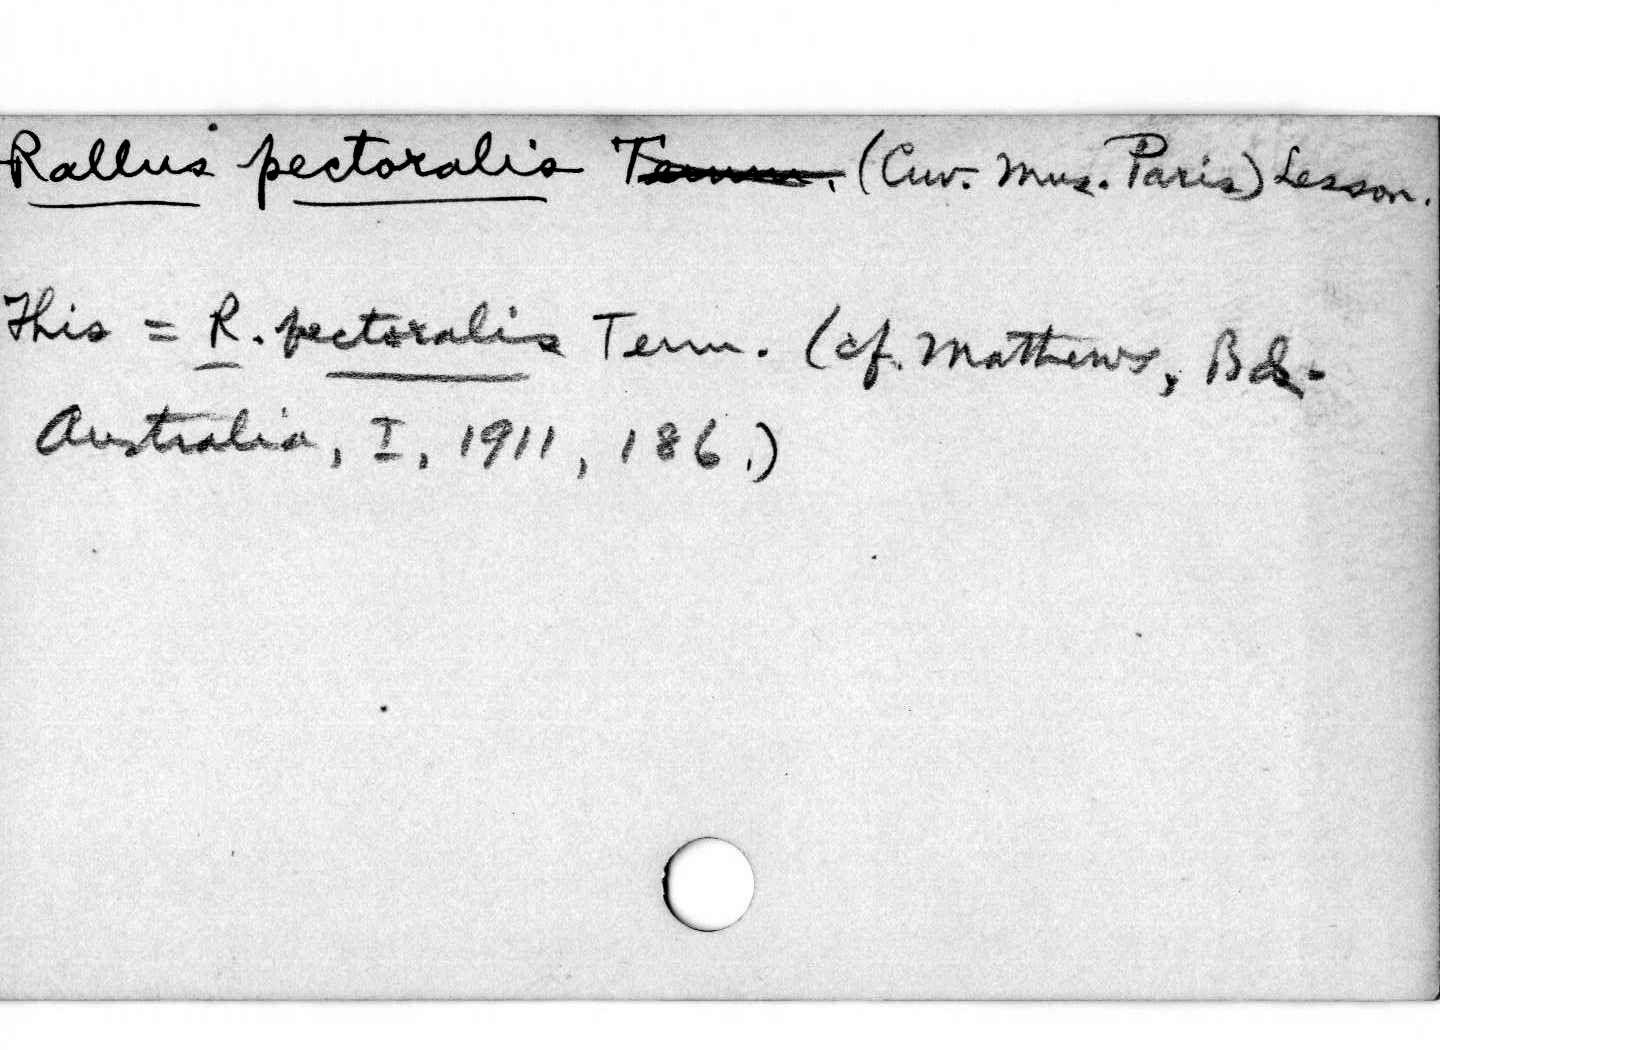 Rallus pectoralis Temm. (Cuv. Mus. Paris) Lesson.
This = R. pectoralis Temm. (cf. Mathews, Bds.
Australia, I, 1911, 186.)